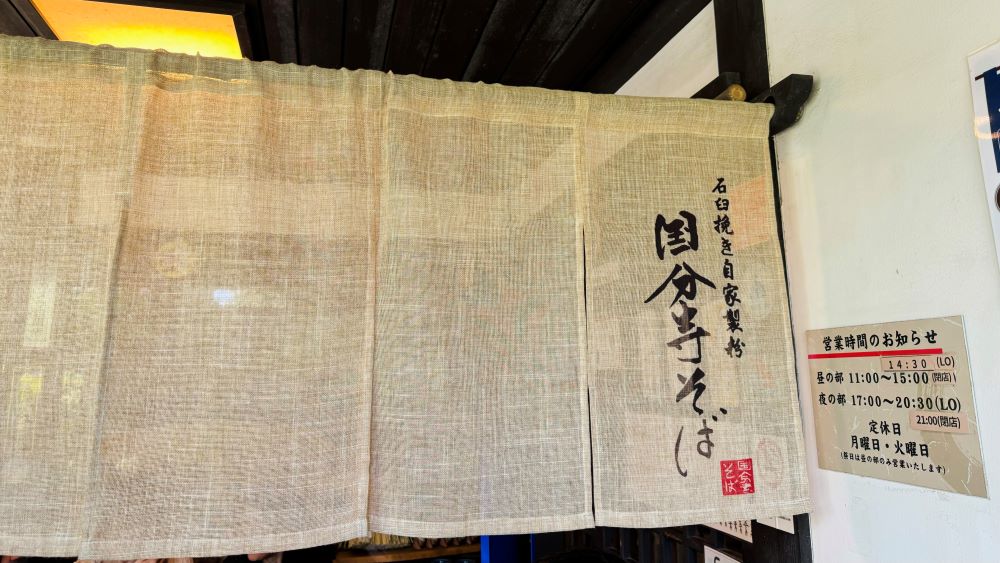 石臼挽き自家製粉
国分寺そば
国分寺
そば
営業時間のお知らせ
14:30 (LO)
昼の部 11:00〜15:00(閉店)
夜の部 17:00〜20:30(LO)
21:00(閉店)
定休日
月曜日・火曜日
(祭日は昼の部のみ営業いたします)